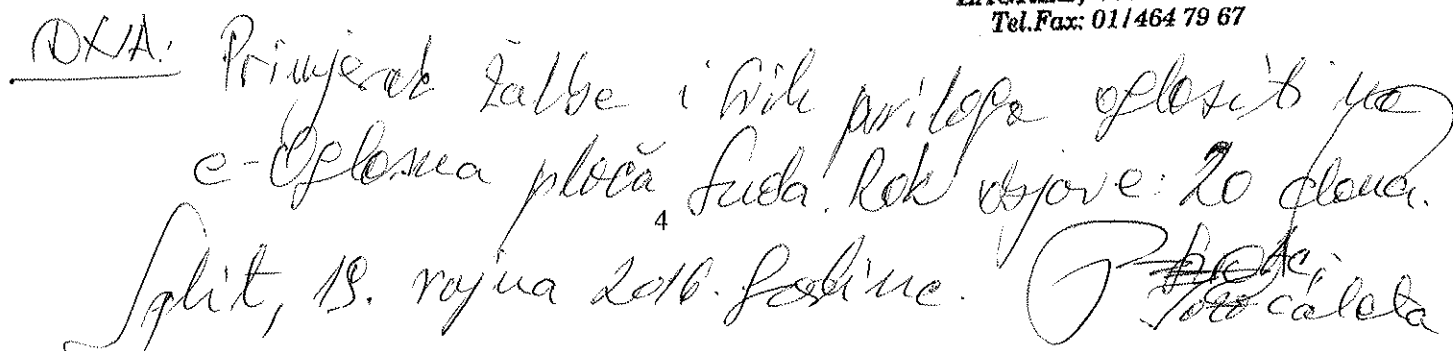 Tel.Fax: 01/464 79 67
DNA: Primjerak žalbe i svih priloga oglasiti na
e-Oglasna ploča suda. Rok objave: 20 dana.
4
Split, 19. rujna 2016. godine.